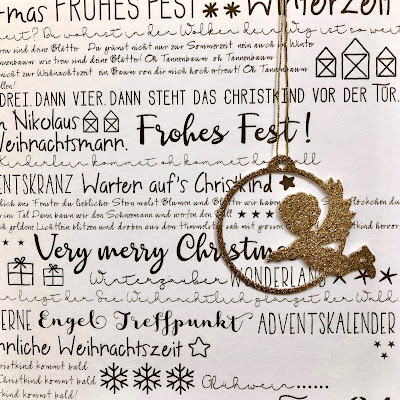 -mas FROHES FEST ** Winterzeit
? Du wohnst in der Wolken dein Weg ist so weit
nenbaum wie treu sind deine Blätter. Du grünst nicht nur zur Sommerzeit nein auch im Winter
nenbaum wie treu sind deine Blätter! Oh Tannenbaum oh Tannenbaum
nicht zur Weihnachtszeit ein Baum von dir mich hoch erfreut! Oh Tannenbaum
DREI. DANN VIER. DANN STEHT DAS CHRISTKIND VOR DER TÜR.
n Nikolaus Frohes Fest!
Weihnachtsmann.
Kinderlein kommet oh kommet doch all
ENTSKRANZ Warten auf's Christkind
dich ans Fenster du lieblicher Stern malst Blumen und Blätter wir haben
ins Tal Dann bauen wir den Schneemann und werfen den
goldene Lichtlein blitzen und
Very merry Christm
Winterzauber WONDERLAND
liegt der See Weihnachtlich glänzet der Wald
ERNE Engel Treffpunkt ADVENTSKALENDER
hnliche Weihnachtszeit
Christkind kommt bald
Christkind kommt bald Glühwein......
hristkind kommt bald!